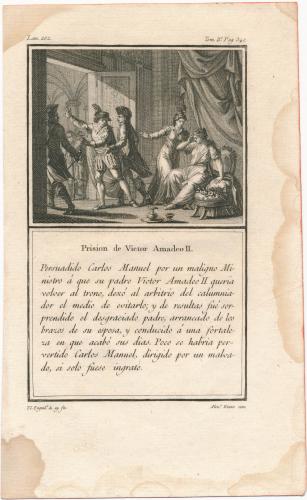 Lam. 282.
Tom. V. Pag. 342.
Prision de Victor Amadeo II.
Persuadido Carlos Manuel por un maligno Mi-
nistro á que su padre Victor Amadeo II queria
volver al trono, dexó al arbitrio del calumnia-
dor el medio de evitarlo; y de resultas fué sor-
prendido el desgraciado padre, arrancado de los
brazos de su esposa, y conducido á una fortale-
za en que acabó sus dias. Poco se habria per-
vertido Carlos Manuel, dirigido por un malva-
do, si solo fuese ingrato.